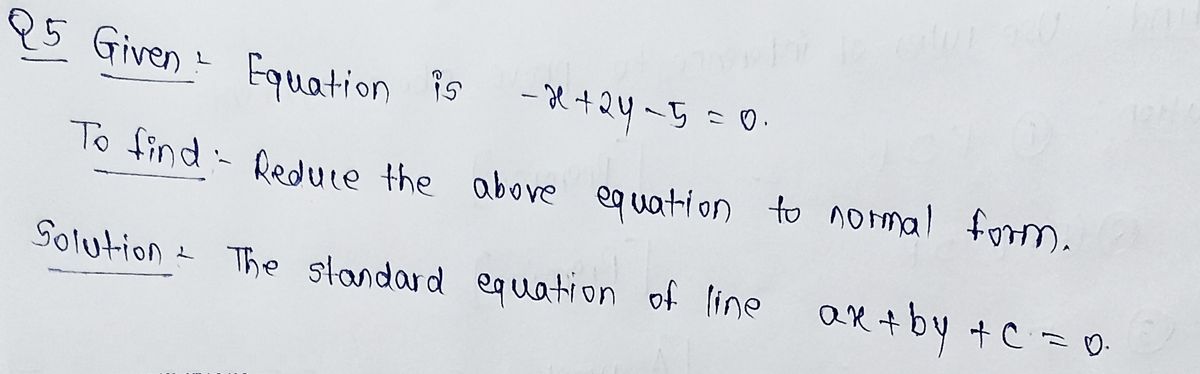 Q5 Given :- Equation is -x+2y-5 = 0.
To find :- Reduce the above equation to normal form.
Solution :- The standard equation of line ax+by+c = 0.